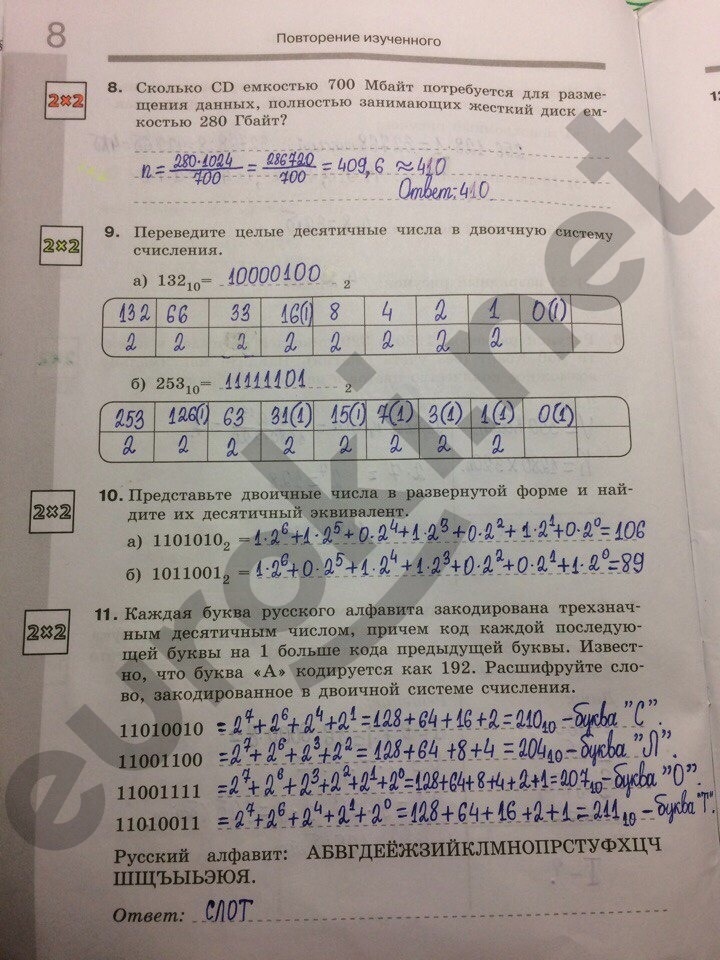 8
Повторение изученного
2×2
8. Сколько CD емкостью 700 Мбайт потребуется для разме-
щения данных, полностью занимающих жесткий диск ем-
костью 280 Гбайт?
n = 280·1024/700 = 286720/700 = 409,6 ≈ 410
Ответ: 410
2×2
9. Переведите целые десятичные числа в двоичную систему
счисления.
а) 132₁₀ = 10000100 ₂
132 66 33 16(1) 8 4 2 1 0(1)
2 2 2 2 2 2 2 2
б) 253₁₀ = 11111101 ₂
253 126(1) 63 31(1) 15(1) 7(1) 3(1) 1(1) 0(1)
2 2 2 2 2 2 2 2
2×2
10. Представьте двоичные числа в развернутой форме и най-
дите их десятичный эквивалент.
а) 1101010₂ = 1·2⁶+1·2⁵+0·2⁴+1·2³+0·2²+1·2¹+0·2⁰=106
б) 1011001₂ = 1·2⁶+0·2⁵+1·2⁴+1·2³+0·2²+0·2¹+1·2⁰=89
2×2
11. Каждая буква русского алфавита закодирована трехзнач-
ным десятичным числом, причем код каждой последую-
щей буквы на 1 больше кода предыдущей буквы. Извест-
но, что буква «А» кодируется как 192. Расшифруйте сло-
во, закодированное в двоичной системе счисления.
11010010 = 2⁷+2⁶+2⁴+2¹=128+64+16+2=210₁₀ – буква "С".
11001100 = 2⁷+2⁶+2³+2² = 128+64+8+4 = 204₁₀ – буква "Л".
11001111 = 2⁷+2⁶+2³+2²+2¹+2⁰=128+64+8+4+2+1=207₁₀ – буква "О".
11010011 = 2⁷+2⁶+2⁴+2¹+2⁰ = 128+64+16+2+1=211₁₀ – буква "Т".
Русский алфавит: АБВГДЕЁЖЗИЙКЛМНОПРСТУФХЦЧ
ШЩЪЫЬЭЮЯ.
Ответ: СЛОТ
euroki.net